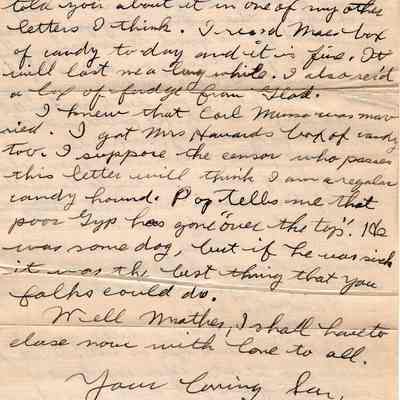 told you about it in one of my other
letters I think. I rec'd Maes box
of candy to-day and it is fine. It
will last me a long while. I also rec'd
a box of fudge from Glad.
I knew that Carl Munso was mar-
ried. I got Mrs Havards box of candy
too. I suppose the censor who passes
this letter will think I am a regular
candy hound. Pop tells me that
poor Gyp has gone "over the top". He
was some dog, but if he was sick
it was the best thing that you
folks could do.
Well Mother, I shall have to
close now with love to all.
Your loving Son,